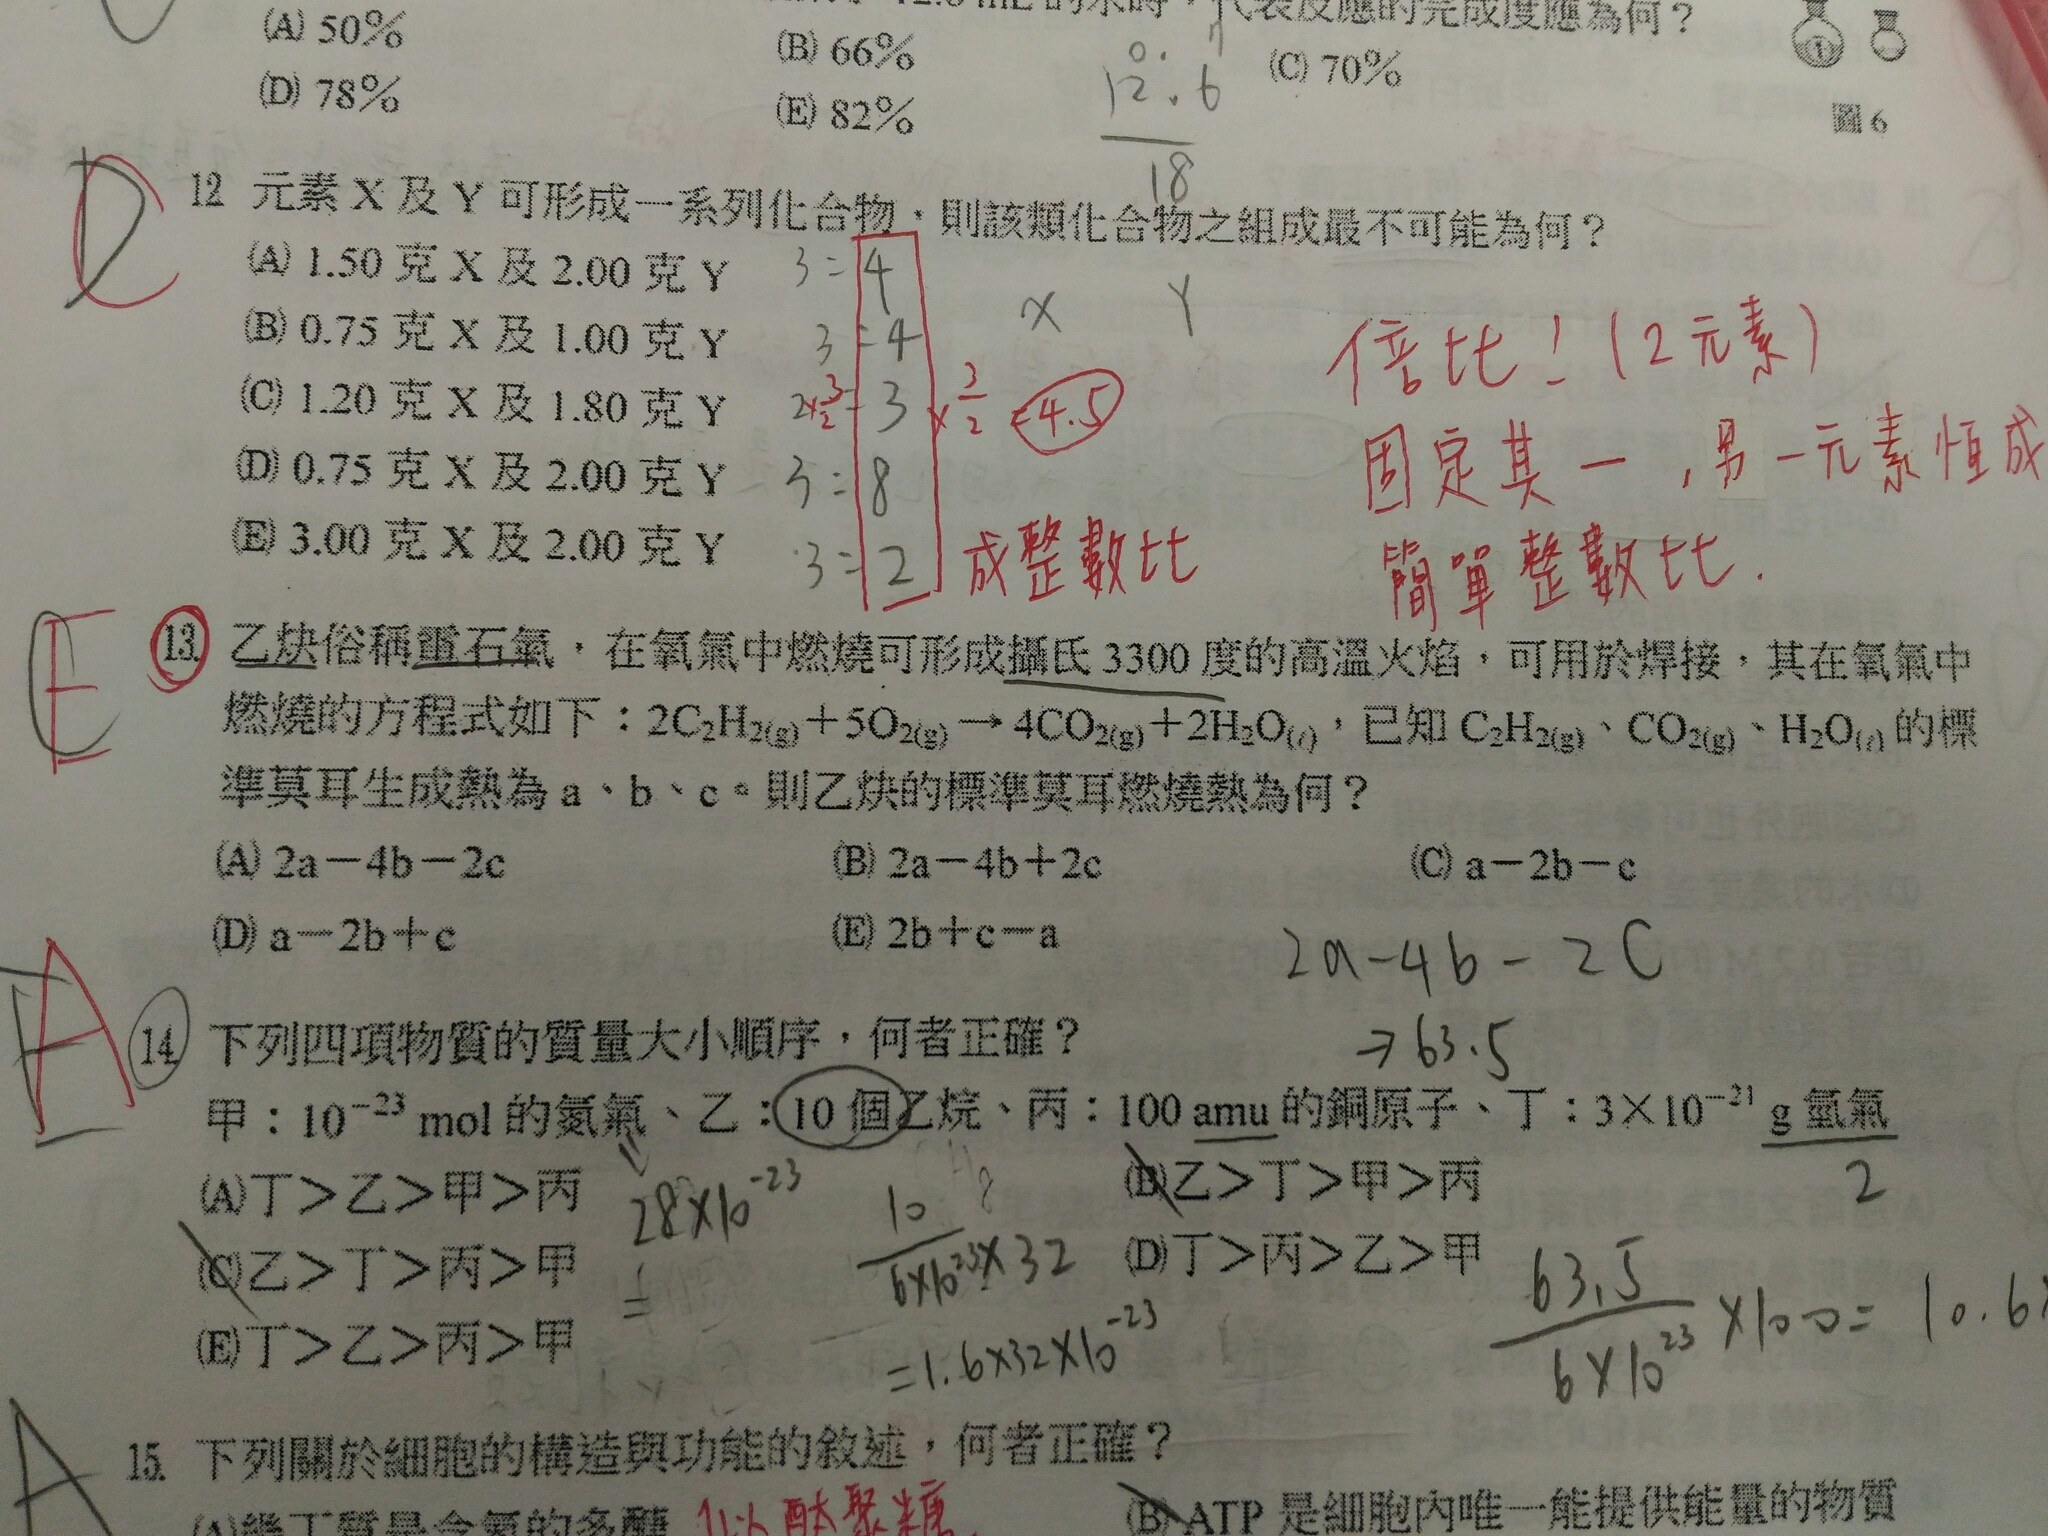 12.6 mL 的水時，代表反應的完成度應為何？
(A) 50%
(B) 66%
(C) 70%
(D) 78%
(E) 82%
0.7
12.6
18
圖 6
12 元素 X 及 Y 可形成一系列化合物，則該類化合物之組成最不可能為何？
(A) 1.50 克 X 及 2.00 克 Y 3:4
X Y
(B) 0.75 克 X 及 1.00 克 Y 3:4
倍比！(2元素)
(C) 1.20 克 X 及 1.80 克 Y 2×3/2:3×3/2=4.5
固定其一，另一元素恒成
(D) 0.75 克 X 及 2.00 克 Y 3:8
(E) 3.00 克 X 及 2.00 克 Y 3:2 成整數比
簡單整數比.
E 13. 乙炔俗稱電石氣，在氧氣中燃燒可形成攝氏 3300 度的高溫火焰，可用於焊接，其在氧氣中
燃燒的方程式如下：2C₂H₂(g)＋5O₂(g)→4CO₂(g)＋2H₂O(ℓ)，已知 C₂H₂(g)、CO₂(g)、H₂O(ℓ) 的標
準莫耳生成熱為 a、b、c。則乙炔的標準莫耳燃燒熱為何？
(A) 2a－4b－2c
(B) 2a－4b＋2c
(C) a－2b－c
(D) a－2b＋c
(E) 2b＋c－a
2a-4b-2C
A 14 下列四項物質的質量大小順序，何者正確？
→63.5
甲：10⁻²³ mol 的氮氣、乙：10 個乙烷、丙：100 amu 的銅原子、丁：3×10⁻²¹ g 氫氣
(A)丁＞乙＞甲＞丙
28×10⁻²³
(B)乙＞丁＞甲＞丙
2
(C)乙＞丁＞丙＞甲
10/6×10²³×32
(D)丁＞丙＞乙＞甲
63.5/6×10²³×100=10.6×
(E)丁＞乙＞丙＞甲
=1.6×32×10⁻²³
A 15. 下列關於細胞的構造與功能的敘述，何者正確？
(A)幾丁質是含氮的多醣
(B) ATP 是細胞內唯一能提供能量的物質